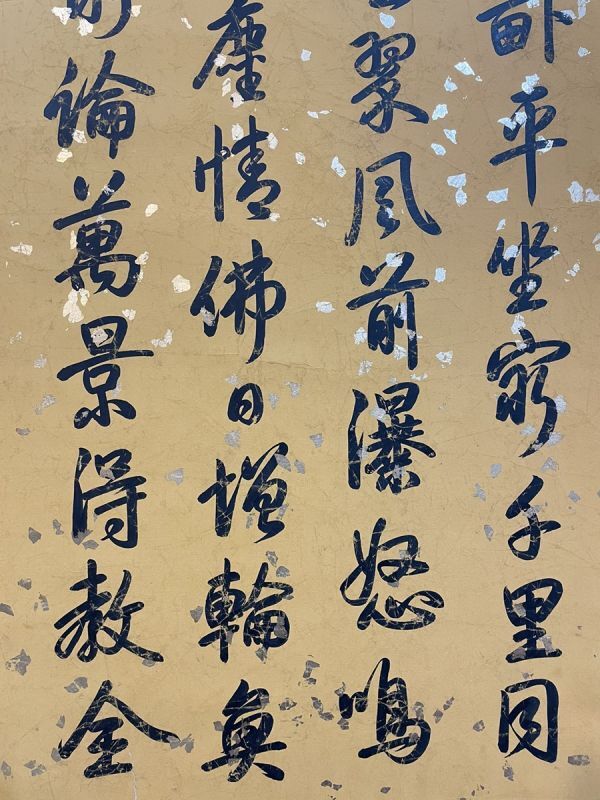 平坐窮千里同
翠風前瀑怒鳴
塵情佛日增輪奐
論萬景得教全